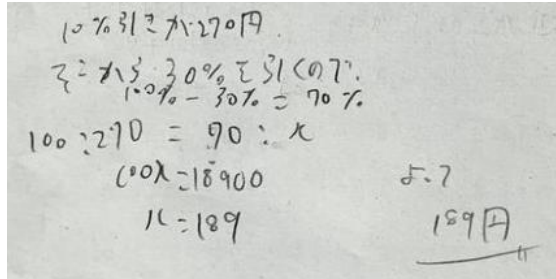 10%引きが270円
そこから30%を引くので、
100% - 30% = 70%
100:270 = 70:x
100x=18900
x=189
よって
189円